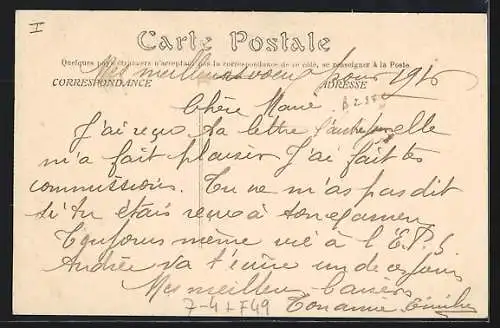 I
Carte Postale
Quelques pays étrangers n'acceptant pas la correspondance de ce côté, se renseigner à la Poste
Mes meilleurs voeux pour 1916
CORRESPONDANCE ADRESSE
Chère Marie
J'ai reçu ta lettre l'autre jour elle
m'a fait plaisir J'ai fait tes
commissions. Tu ne m'as pas dit
si tu étais reçue à ton examen
Toujours même vie à l'E.P.S
Andrée va t'écrire un de ces jours
Mes meilleurs baisers
7-4 + F49
Ton amie Émilie